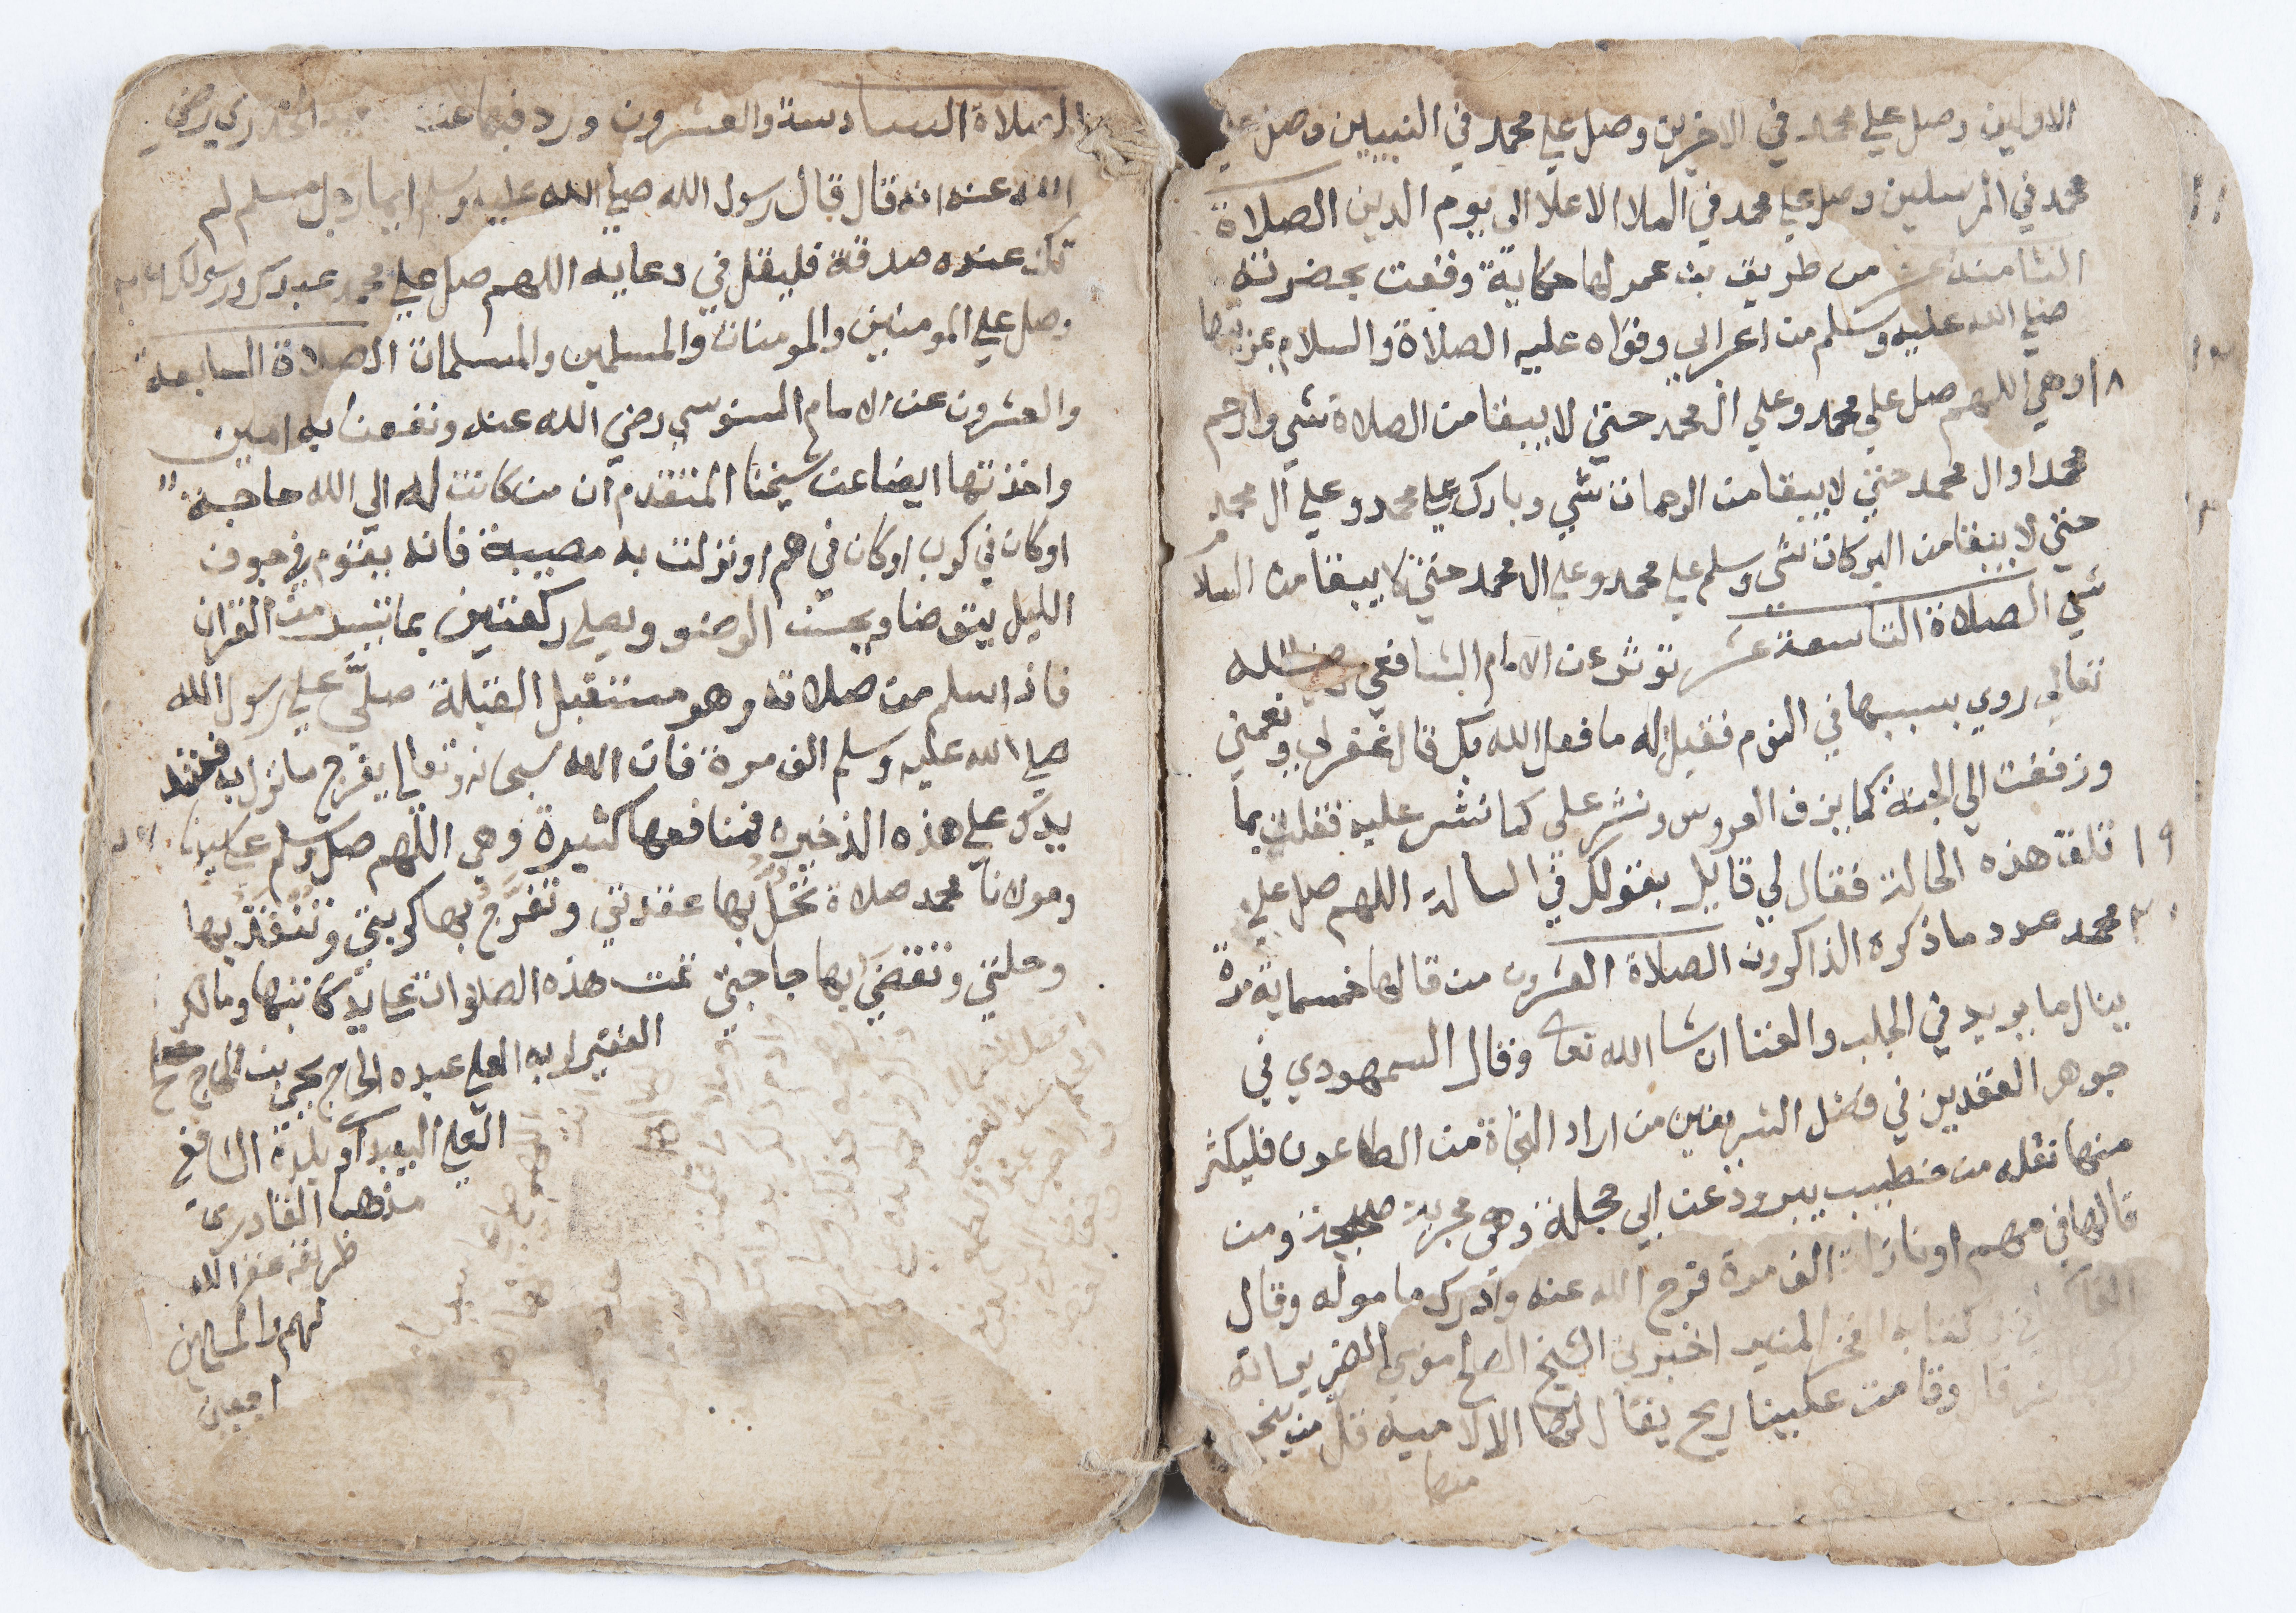 الاولين وصل علي محمد في الاخرين وصل علي محمد في النبيين وصل علي
محمد في المرسلين وصل علي محمد في الملا الاعلا الى يوم الدين الصلاة
الثامنة عشر من طريق بن عمر لها حكاية وقعت بحضرته
صلي الله عليه وسلم من اعرابي وفواه عليه الصلاة والسلام بمزيتها
١٨ وهي اللهم صل علي محمد وعلي ال محمد حتي لا يبقا من الصلاة شي وارحم
محمدا وال محمد حتي لا يبقا من الرحمات شي وبارك علي محمد وعلي آل محمد
حتي لا يبقا من البركات شي وسلم علي محمد وعلي ال محمد حتي لا يبقا من السلام
شي الصلاة التاسعة عشر توثر عن الامام الشافعي رضي الله
تعالي روي بسببها في النوم فقيل له ما فعل الله بك قال غفر لي ونعمني
وزففت الي الجنة كما يزف العروس ونثر علي كما نثر عليه فقلت بما
١٩ نلت هذه الحالة فقال لي قايل بقولك في الرسالة اللهم صل علي
٢٠ محمد عدد ما ذكره الذاكرون الصلاة العشرون من قالها خمسماية مرة
ينال ما يريد في الجلب والغنا ان شا الله تعا وقال السمهودي في
جوهر العقدين في فضل الشريفين من اراد النجاة من الطاعون فليكثر
منها نقله من خطيب يبرود عن ابي حجلة وهي مجربة صحيحة ومن
قالها في مهم او نازلة الف مرة فرج الله عنه وادرك ما موله وقال
الفاكهاني في كتابه الفجر المنير اخبرني الشيخ الصالح موسي الضرير انه
ركب وقامت علينا ريح يقال لها الاقلابية قل من ينجو
منها
الصلاة السادسة والعشرون ورد فيها عن الخدري رضي
الله عنه انه قال قال رسول الله صلي الله عليه وسلم ايما رجل مسلم لم
تكن عنده صدقة فليقل في دعايه اللهم صل علي محمد عبدك ورسولك ٢٦
وصل علي المومنين والمومنات والمسلمين والمسلمات الصلاة السابعة
والعشرون عن الامام السنوسي رضي الله عنه ونفعنا به امين
واخذتها ايضا عن شيخنا المتقدم ان من كانت له الي الله حاجة
او كان في كرب او كان في هم او نزلت به مصيبة فانه يقوم في جوف
الليل يتوضا ويحسن الوضو ويصلي ركعتين بما تيسر من القران
فاذا سلم من صلاته وهو مستقبل القبلة صلَّي علي رسول الله
صلي الله عليه وسلم الف مرة فان الله سبحانه وتعالي يفرج ما نزل به فعند
يدك علي هذه الذخيره فمنافعها كثيرة وهي اللهم صل وسلم علي سيدنا ٢٧
ومولانا محمد صلاة تحل بها عقدتي وتفرج بها كربتي وتنقذ بها
وحلتي وتقضي بها حاجتي تمت هذه الصلوات علي يد كاتبها ومالكه
الفقير لربه العلي عبده الحاج بن الحاج
العلي بلدة الشافعي
مذهبا القادري
طريقة غفر الله
لهم والمسلمين
اجمعين